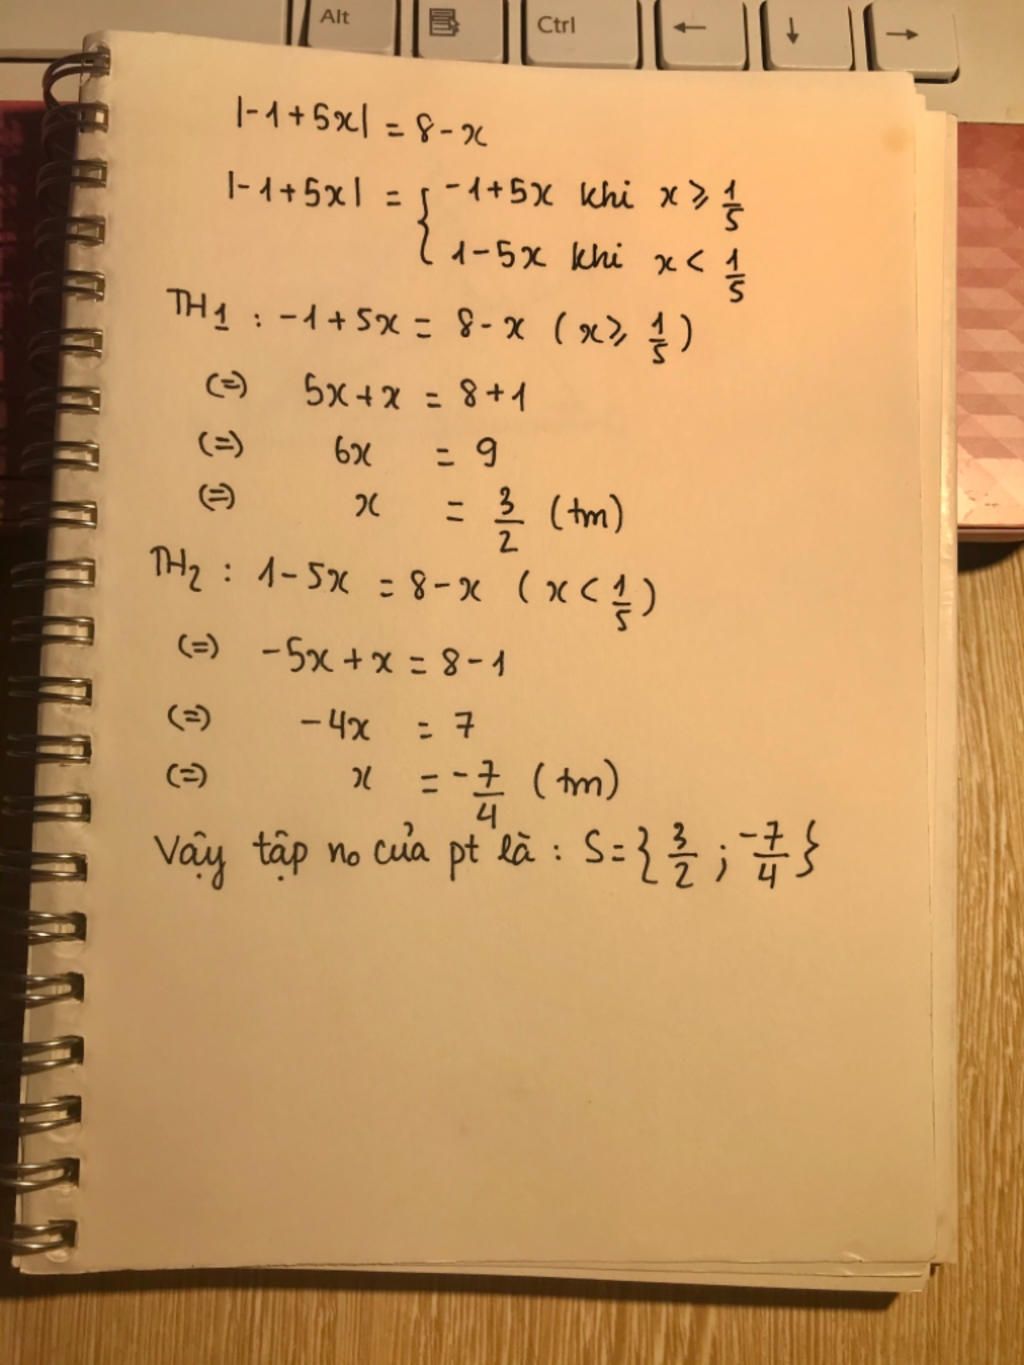 Alt
Ctrl
← ↓ →
|-1+5x| = 8-x
|-1+5x| = { -1+5x khi x ≥ 1/5
1-5x khi x < 1/5
TH1 : -1+5x = 8-x (x ≥ 1/5)
(=) 5x+x = 8+1
(=) 6x = 9
(=) x = 3/2 (tm)
TH2 : 1-5x = 8-x (x < 1/5)
(=) -5x+x = 8-1
(=) -4x = 7
(=) x = -7/4 (tm)
Vậy tập no của pt là : S={3/2 ; -7/4}